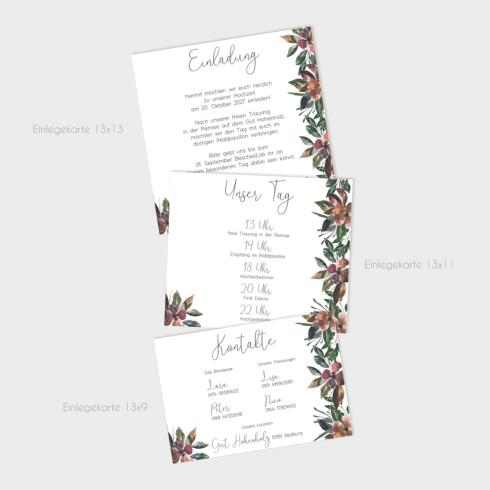 Einladung
hiermit möchten wir euch herzlich
zu unserer Hochzeit
am 20. Oktober 2027 einladen!
Nach unserer freien Trauung
in der Remise auf dem Gut Hohenholz,
möchten wir den Tag mit euch im
dortigen Waldpavillon verbringen.
Bitte gebt uns bis zum
01. September Bescheid, ob ihr an
besonderen Tag dabei sein könnt.
Einlegekarte 13x13
Unser Tag
13 Uhr
freie Trauung in der Remise
14 Uhr
Empfang im Waldpavillon
18 Uhr
Hochzeitsdinner
20 Uhr
First Dance
22 Uhr
Einlegekarte 13x11
Kontakte
Das Brautpaar
Unsere Trauzeugen
Lara
Lisa
Peter
Nico
Unsere Location
Gut Hohenholz 50181 Bedburg
Einlegekarte 13x9